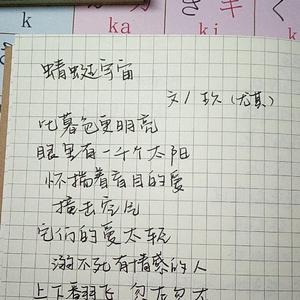 き キ く
k ka ki
蜻蜓宇宙
文/玖（尤其）
比暮色更明亮
眼里有一千个太阳
怀揣着盲目的爱
撞击空气
它们的爱太软
溺不死有情感的人
上下翻飞 忽左忽右